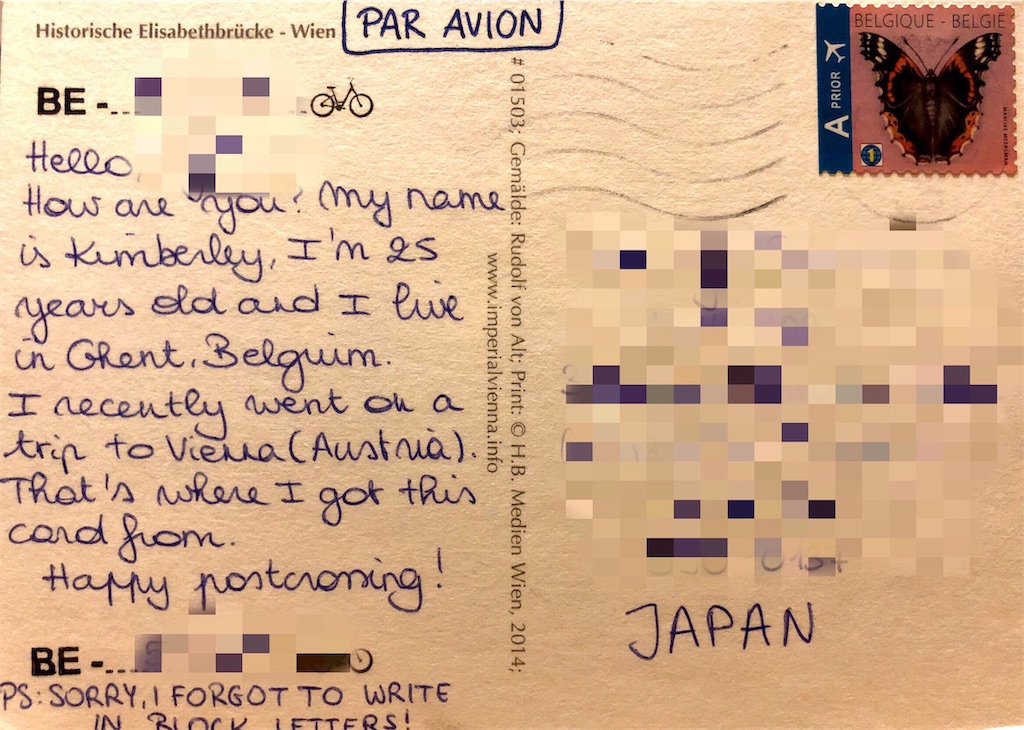 Historische Elisabethbrücke - Wien
PAR AVION
BELGIQUE - BELGIË
A PRIOR
1
BE -
Hello,
How are you? My name
is Kimberley, I'm 25
years old and I live
in Ghent, Belguim.
I recently went on a
trip to Vienna (Austria).
That's where I got this
card from.
Happy postcrossing!
BE -
PS: SORRY, I FORGOT TO WRITE
IN BLOCK LETTERS!
# 01503; Gemälde: Rudolf von Alt; Print: © H.B. Medien Wien, 2014;
www.imperialvienna.info
JAPAN